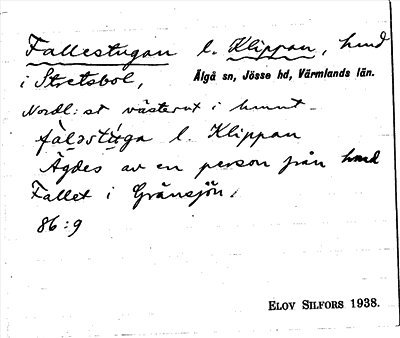 Fallestugan l. Klippan, hmd
i Stretsbol, Älgå sn, Jösse hd, Värmlands län.
Nordl: st västerut i hmnt.
fàləstúga l. Klippan
Ägdes av en person från hmd
Fallet i Gränsjön.
86:9
ELOV SILFORS 1938.